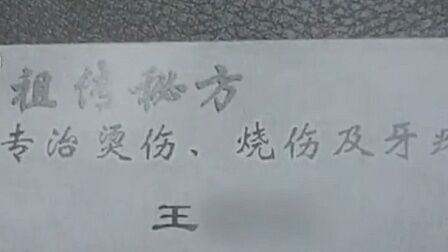 祖传秘方
专治烫伤、烧伤及牙
王